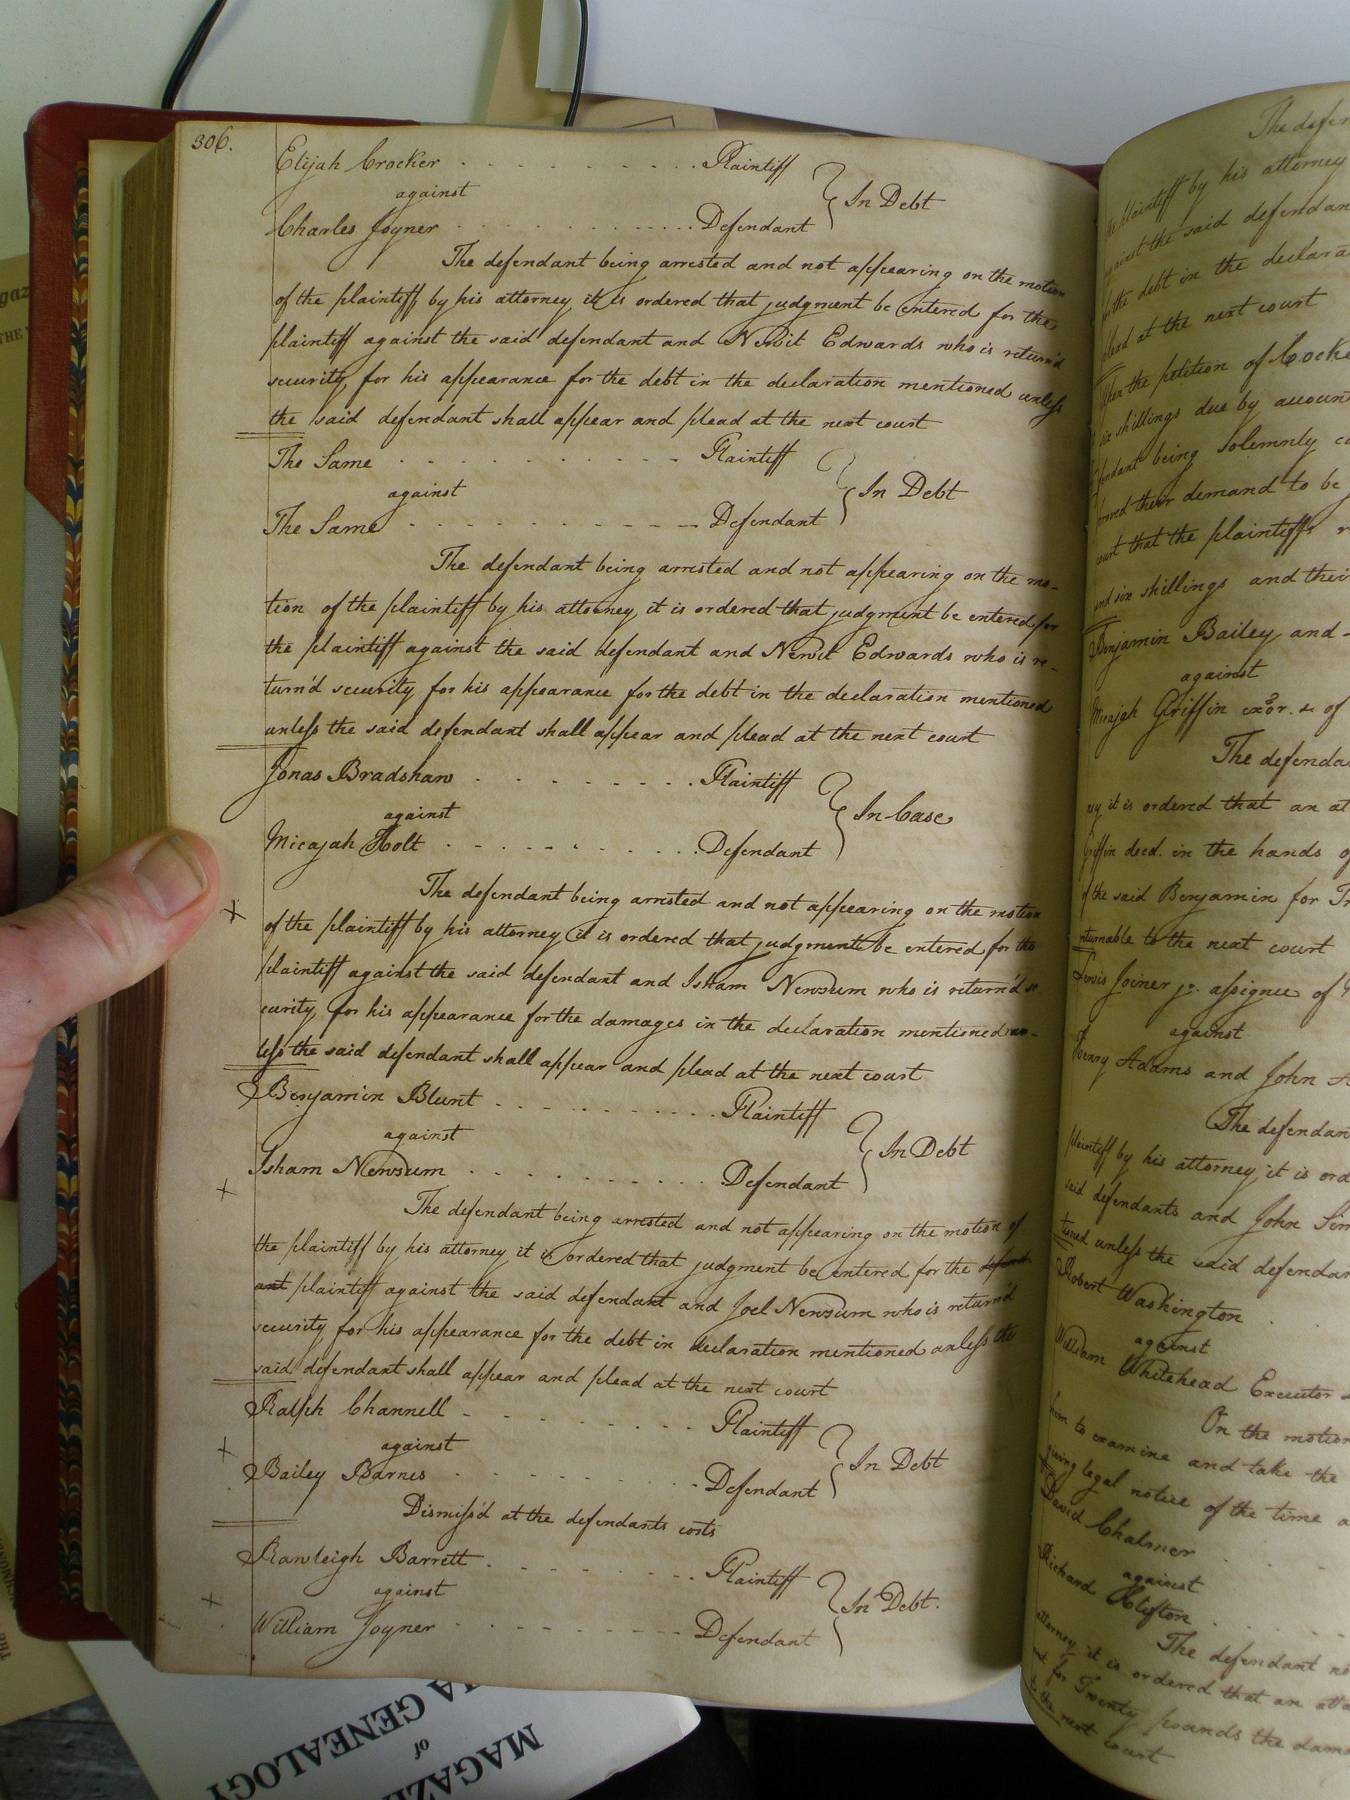 306.
Elijah Crocker . . . . . . . . . . Plaintiff
against
In Debt
Charles Joyner . . . . . . . . . . Defendant
The defendant being arrested and not appearing on the motion
of the plaintiff by his attorney it is ordered that judgment be entered for the
plaintiff against the said defendant and Newit Edwards who is return'd
security, for his appearance for the debt in the declaration mentioned unless
the said defendant shall appear and plead at the next court
The Same . . . . . . . . . . Plaintiff
against
In Debt
The Same . . . . . . . . . . Defendant
The defendant being arrested and not appearing on the mo-
tion of the plaintiff by his attorney, it is ordered that judgment be entered for
the plaintiff against the said defendant and Newit Edwards who is re-
turn'd security, for his appearance for the debt in the declaration mentioned
unless the said defendant shall appear and plead at the next court
Jonas Bradshaw . . . . . . . . Plaintiff
against
In Case
Micajah Holt . . . . . . . . . . Defendant
The defendant being arrested and not appearing on the motion
x
of the plaintiff by his attorney it is ordered that judgment be entered for the
plaintiff against the said defendant and Isham Newsum who is return'd se
curity, for his appearance for the damages in the declaration mentioned un-
less the said defendant shall appear and plead at the next court
Benjamin Blunt . . . . . . . . . . Plaintiff
against
In Debt
Isham Newsum . . . . . . . . Defendant
x
The defendant being arrested and not appearing on the motion of
the plaintiff by his attorney it is ordered that judgment be entered for the defend
ant plaintiff against the said defendant and Joel Newsum who is return'd
security for his appearance for the debt in declaration mentioned unless the
said defendant shall appear and plead at the next court
Ralph Channell . . . . . . . . Plaintiff
x
against
In Debt
Bailey Barnes . . . . . . . . Defendant
Dismiss'd at the defendants costs
Rawleigh Barrett . . . . . . . . Plaintiff
against
In Debt.
x
William Joyner . . . . . . . . Defendant
The defen
the plaintiff by his attorney
against the said defendan
for the debt in the declara
plead at the next court
Upon the petition of Cocke
six shillings due by account
fendant being solemnly ca
proved their demand to be
court that the plaintiffs r
and six shillings and their
Benjamin Bailey and
against
Micajah Griffin exor. & of
The defenda
ney it is ordered that an at
Griffin deced. in the hands of
of the said Benjamin for
returnable to the next court
Lewis Joiner jr. assignee of
against
Henry Adams and John
The defendan
plaintiff by his attorney it is ord
said defendants and John Sim
tioned unless the said defendan
Robert Washington . .
against
William Whitehead Executor
On the motion
him to examine and take the
giving legal notice of the time a
David Chalmer . . .
against
Richard Clifton . . . .
The defendant no
attorney it is ordered that an atta
ant for Twenty pounds the dama
to the next court
MAGAZI
of
IA GENEALOGY